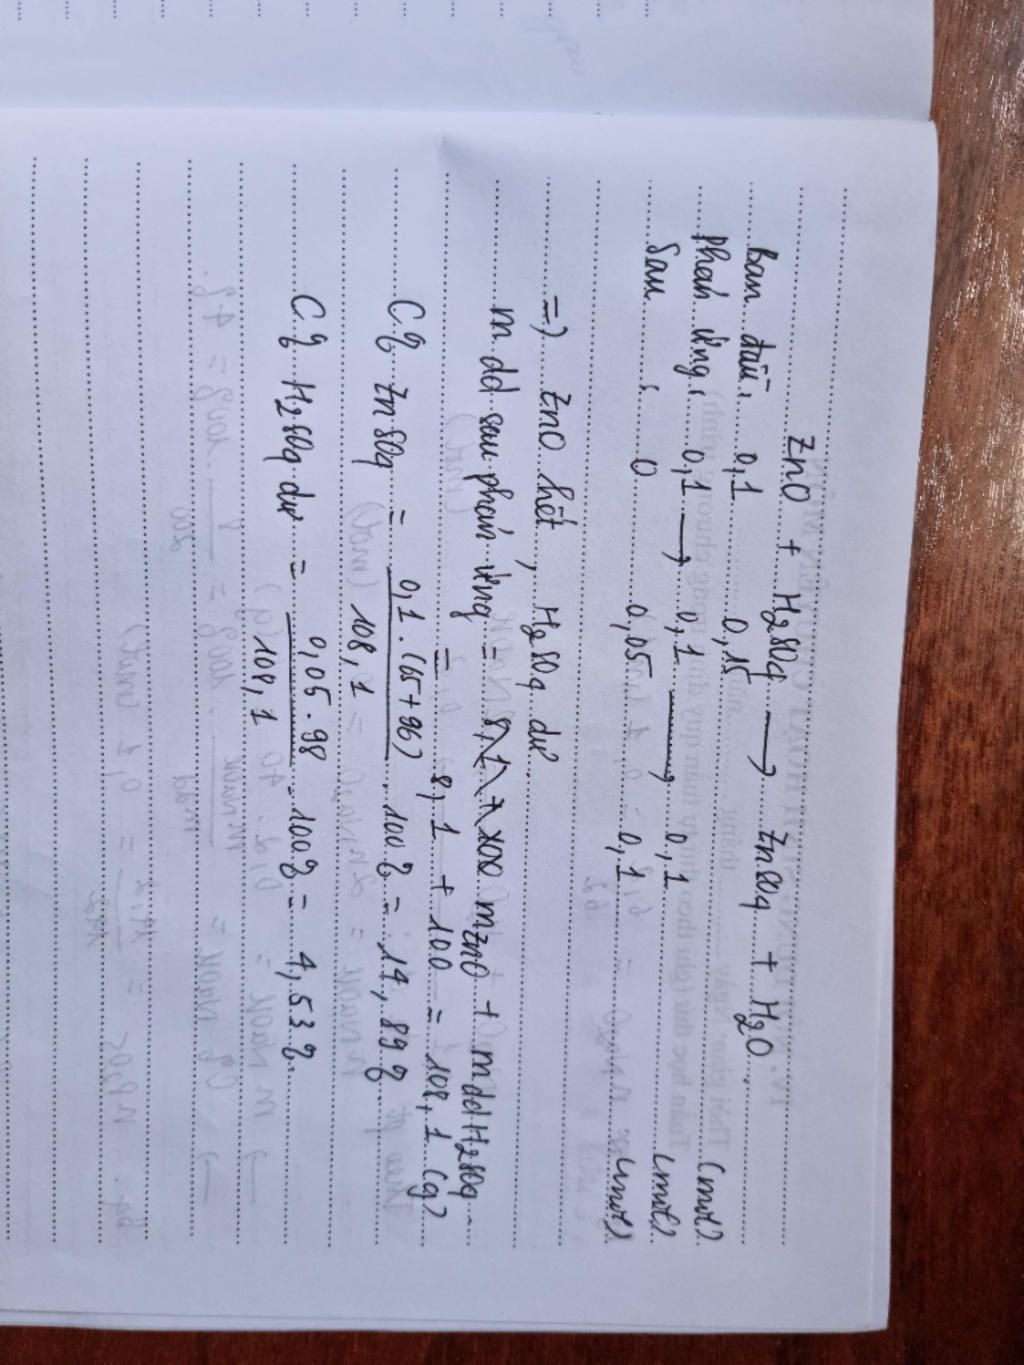 ZnO + H2SO4 → ZnSO4 + H2O
Ban đầu: 0,1 0,15 (mol)
Phản ứng: 0,1 → 0,1 → 0,1 (mol)
Sau : 0 0,05 0,1 (mol)
=) ZnO hết, H2SO4 dư
m dd sau phản ứng = mZnO + mddH2SO4
= 8,1 + 100 = 108,1 (g)
C% ZnSO4 = 0,1.(65+96) / 108,1 . 100% = 14,89%
C% H2SO4 dư = 0,05.98 / 108,1 . 100% = 4,53%